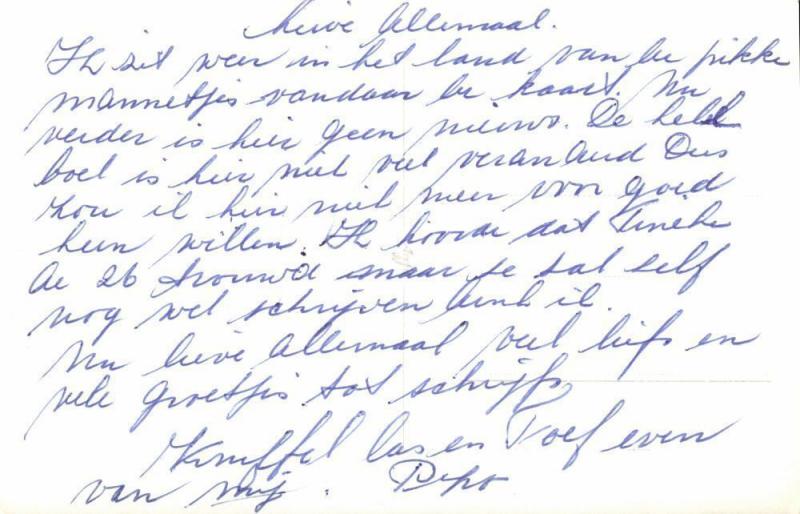 Lieve Allemaal.
Ik zit weer in het land van de pikke
mannetjes vandaar de kaart. Nu
verder is hier geen nieuws. De hele
boel is hier niet veel veranderd Dus
zou ik hier niet meer voor goed
heen willen. Ik hoorde dat Tineke
de 26 trouwd maar se sal self
nog wel schrijven denk ik.
Nu lieve Allemaal veel liefs en
vele groetjes tot schrijfs
Knuffel en Toef even
van mij.